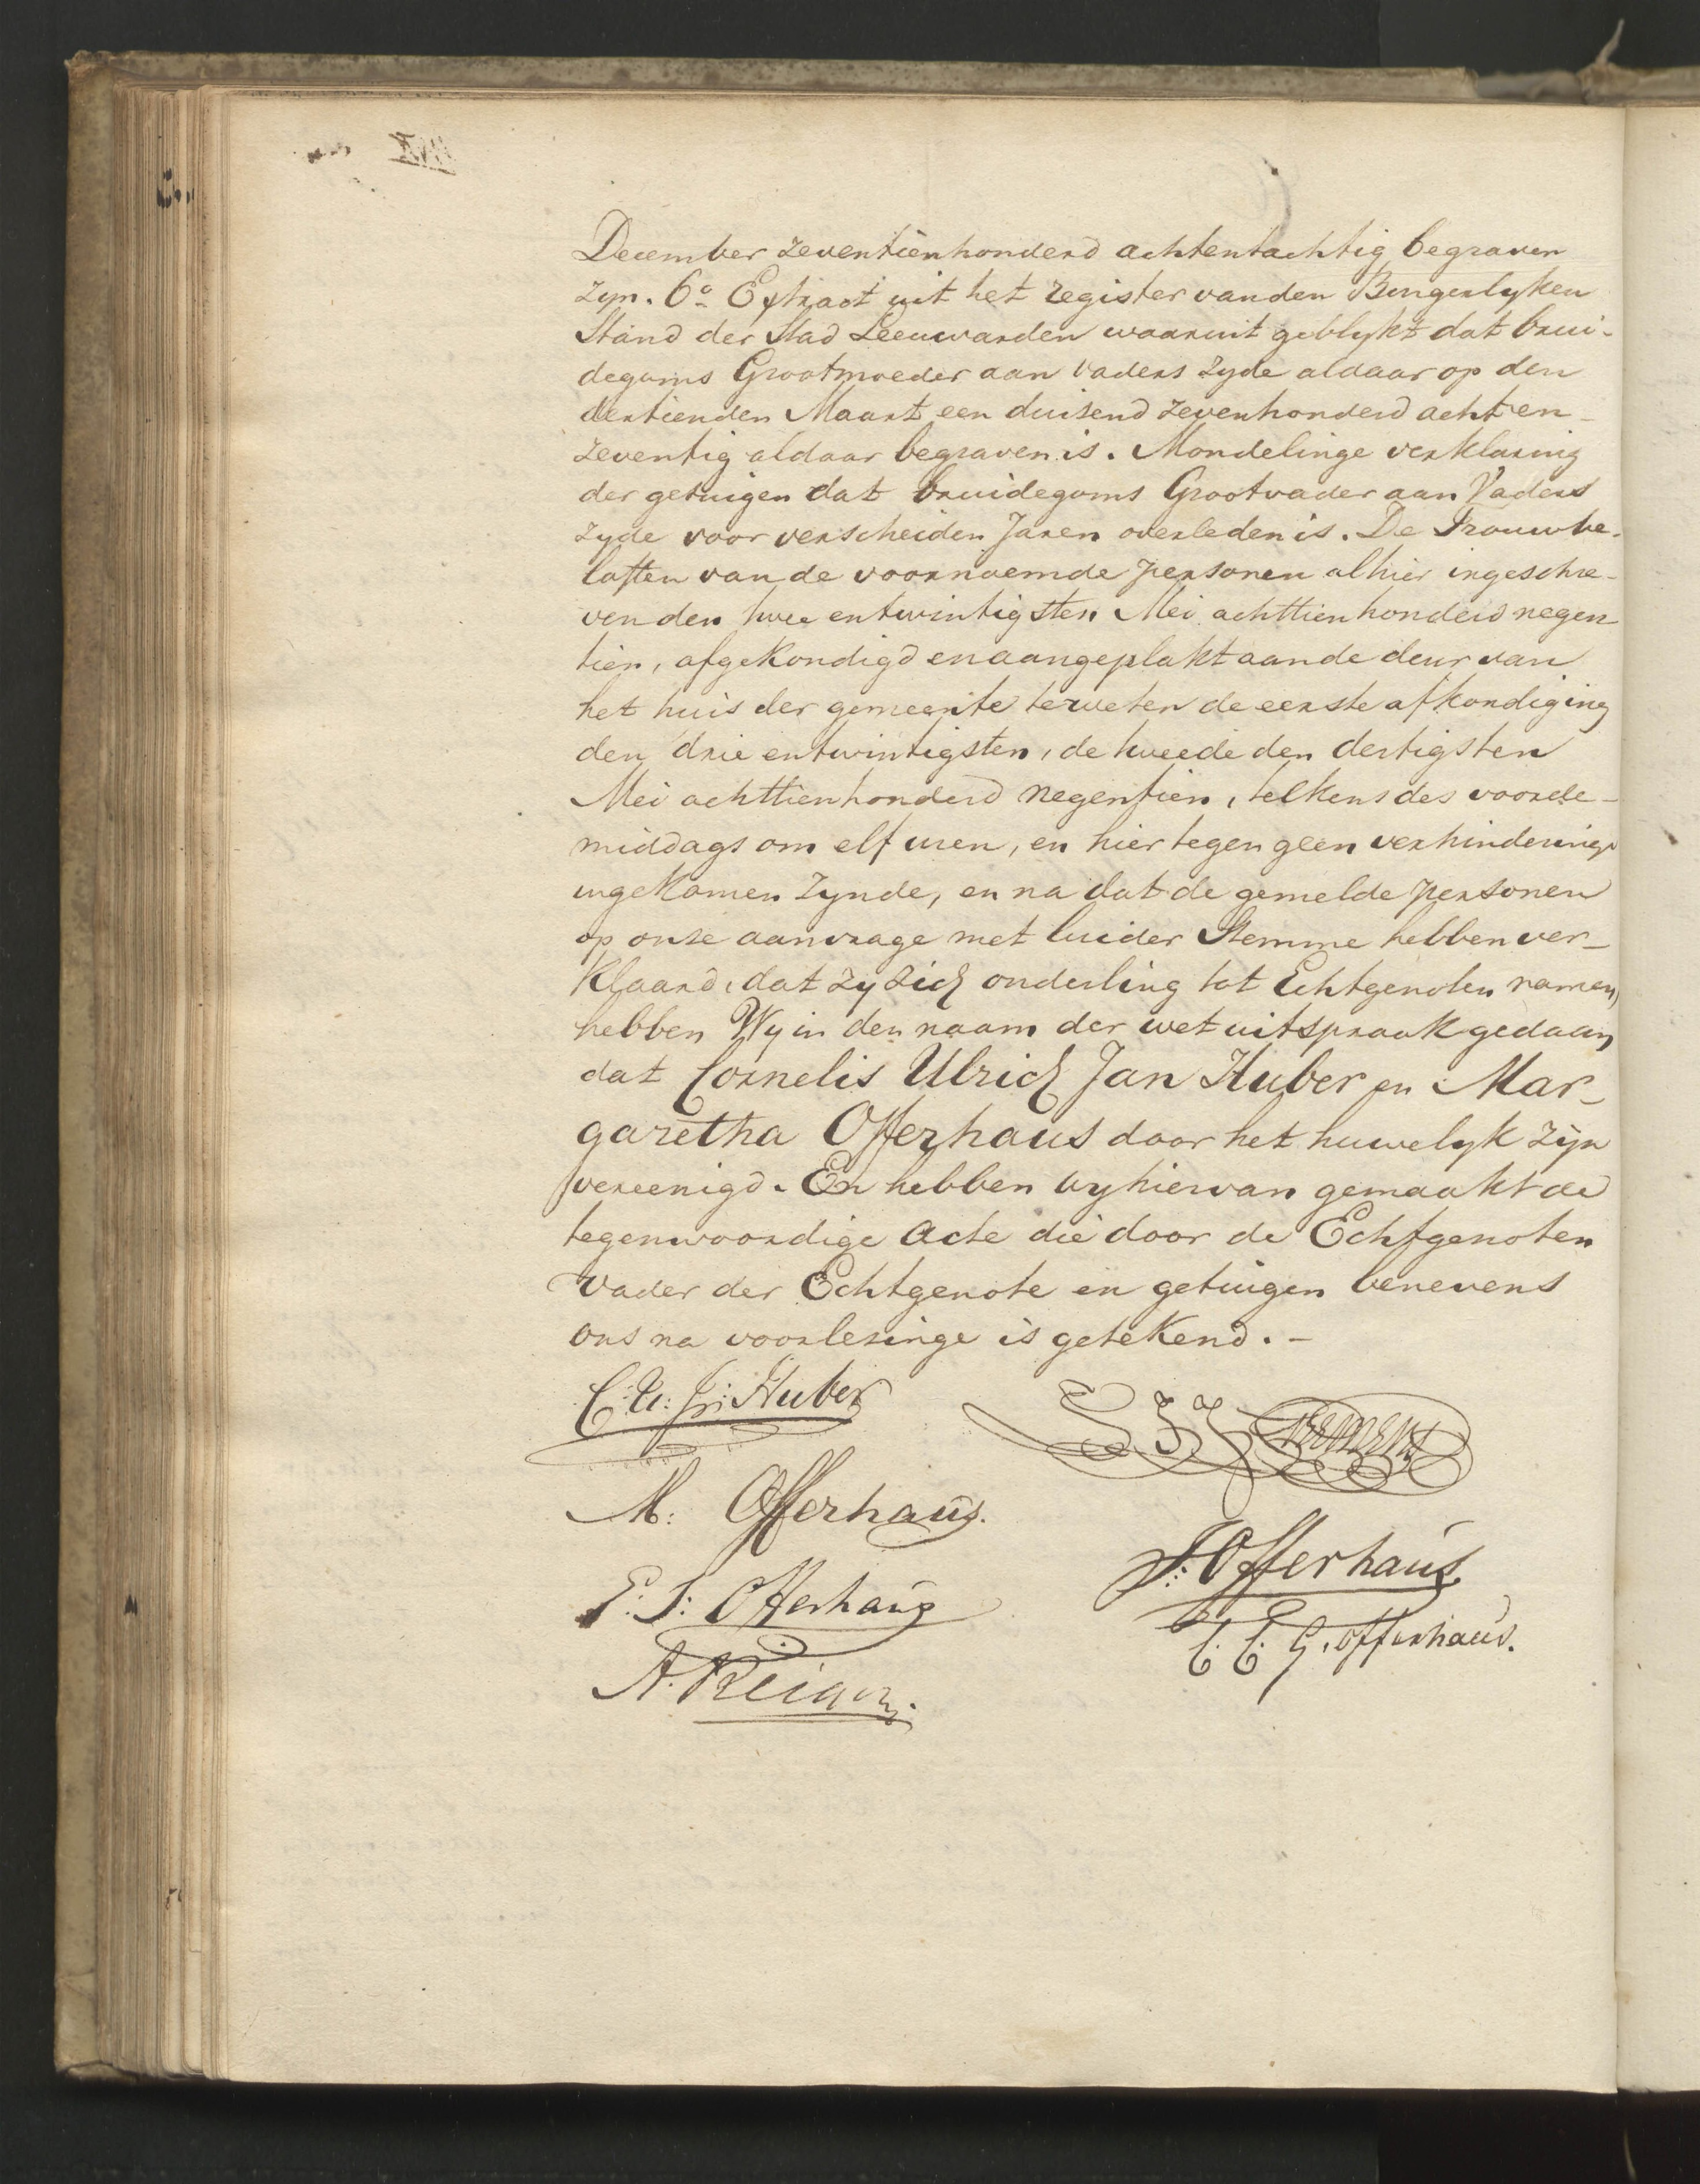 December zeventienhonderd achtentachtig begraven
zyn. 6o Extract uit het register van den Burgerlyken
Stand der Stad Leeuwarden waaruit geblykt dat brui-
degoms Grootmoeder aan vaders zyde aldaar op den
dertienden Maart een duisend zevenhonderd acht en
zeventig aldaar begraven is. Mondelinge verklaring
der getuigen dat bruidegoms Grootvader aan Vaders
zyde voor verscheiden Jaren overleden is. De Trouwbe-
loften van de voornoemde personen alhier ingeschre-
ven den twee entwintigsten Mei achttienhonderd negen
tien, afgekondigd en aangeplakt aan de deur van
het huis der gemeente te weten de eerste afkondiging
den drie entwintigsten, de tweede den dertigsten
Mei achttienhonderd negentien, telkens des voorde-
middags om elf uren, en hier tegen geen verhinderinge
ingekomen zynde, en na dat de gemelde personen
op onse aanvrage met luider Stemme hebben ver-
klaard, dat zy zich onderling tot Echtgenoten namen,
hebben Wy in den naam der wet uitspraak gedaan
dat Cornelis Ulrich Jan Huber en Mar-
garetha Offerhaus door het huwelyk zijn
vereenigd. En hebben wy hiervan gemaakt de
tegenwoordige acte die door de Echtgenoten
Vader der Echtgenote en getuigen benevens
ons na voorlezinge is getekend. -
C: U: J: Huber
M: Offerhaus.
J: Offerhaus
E: J: Offerhaus
C. C. G. Offerhaus.